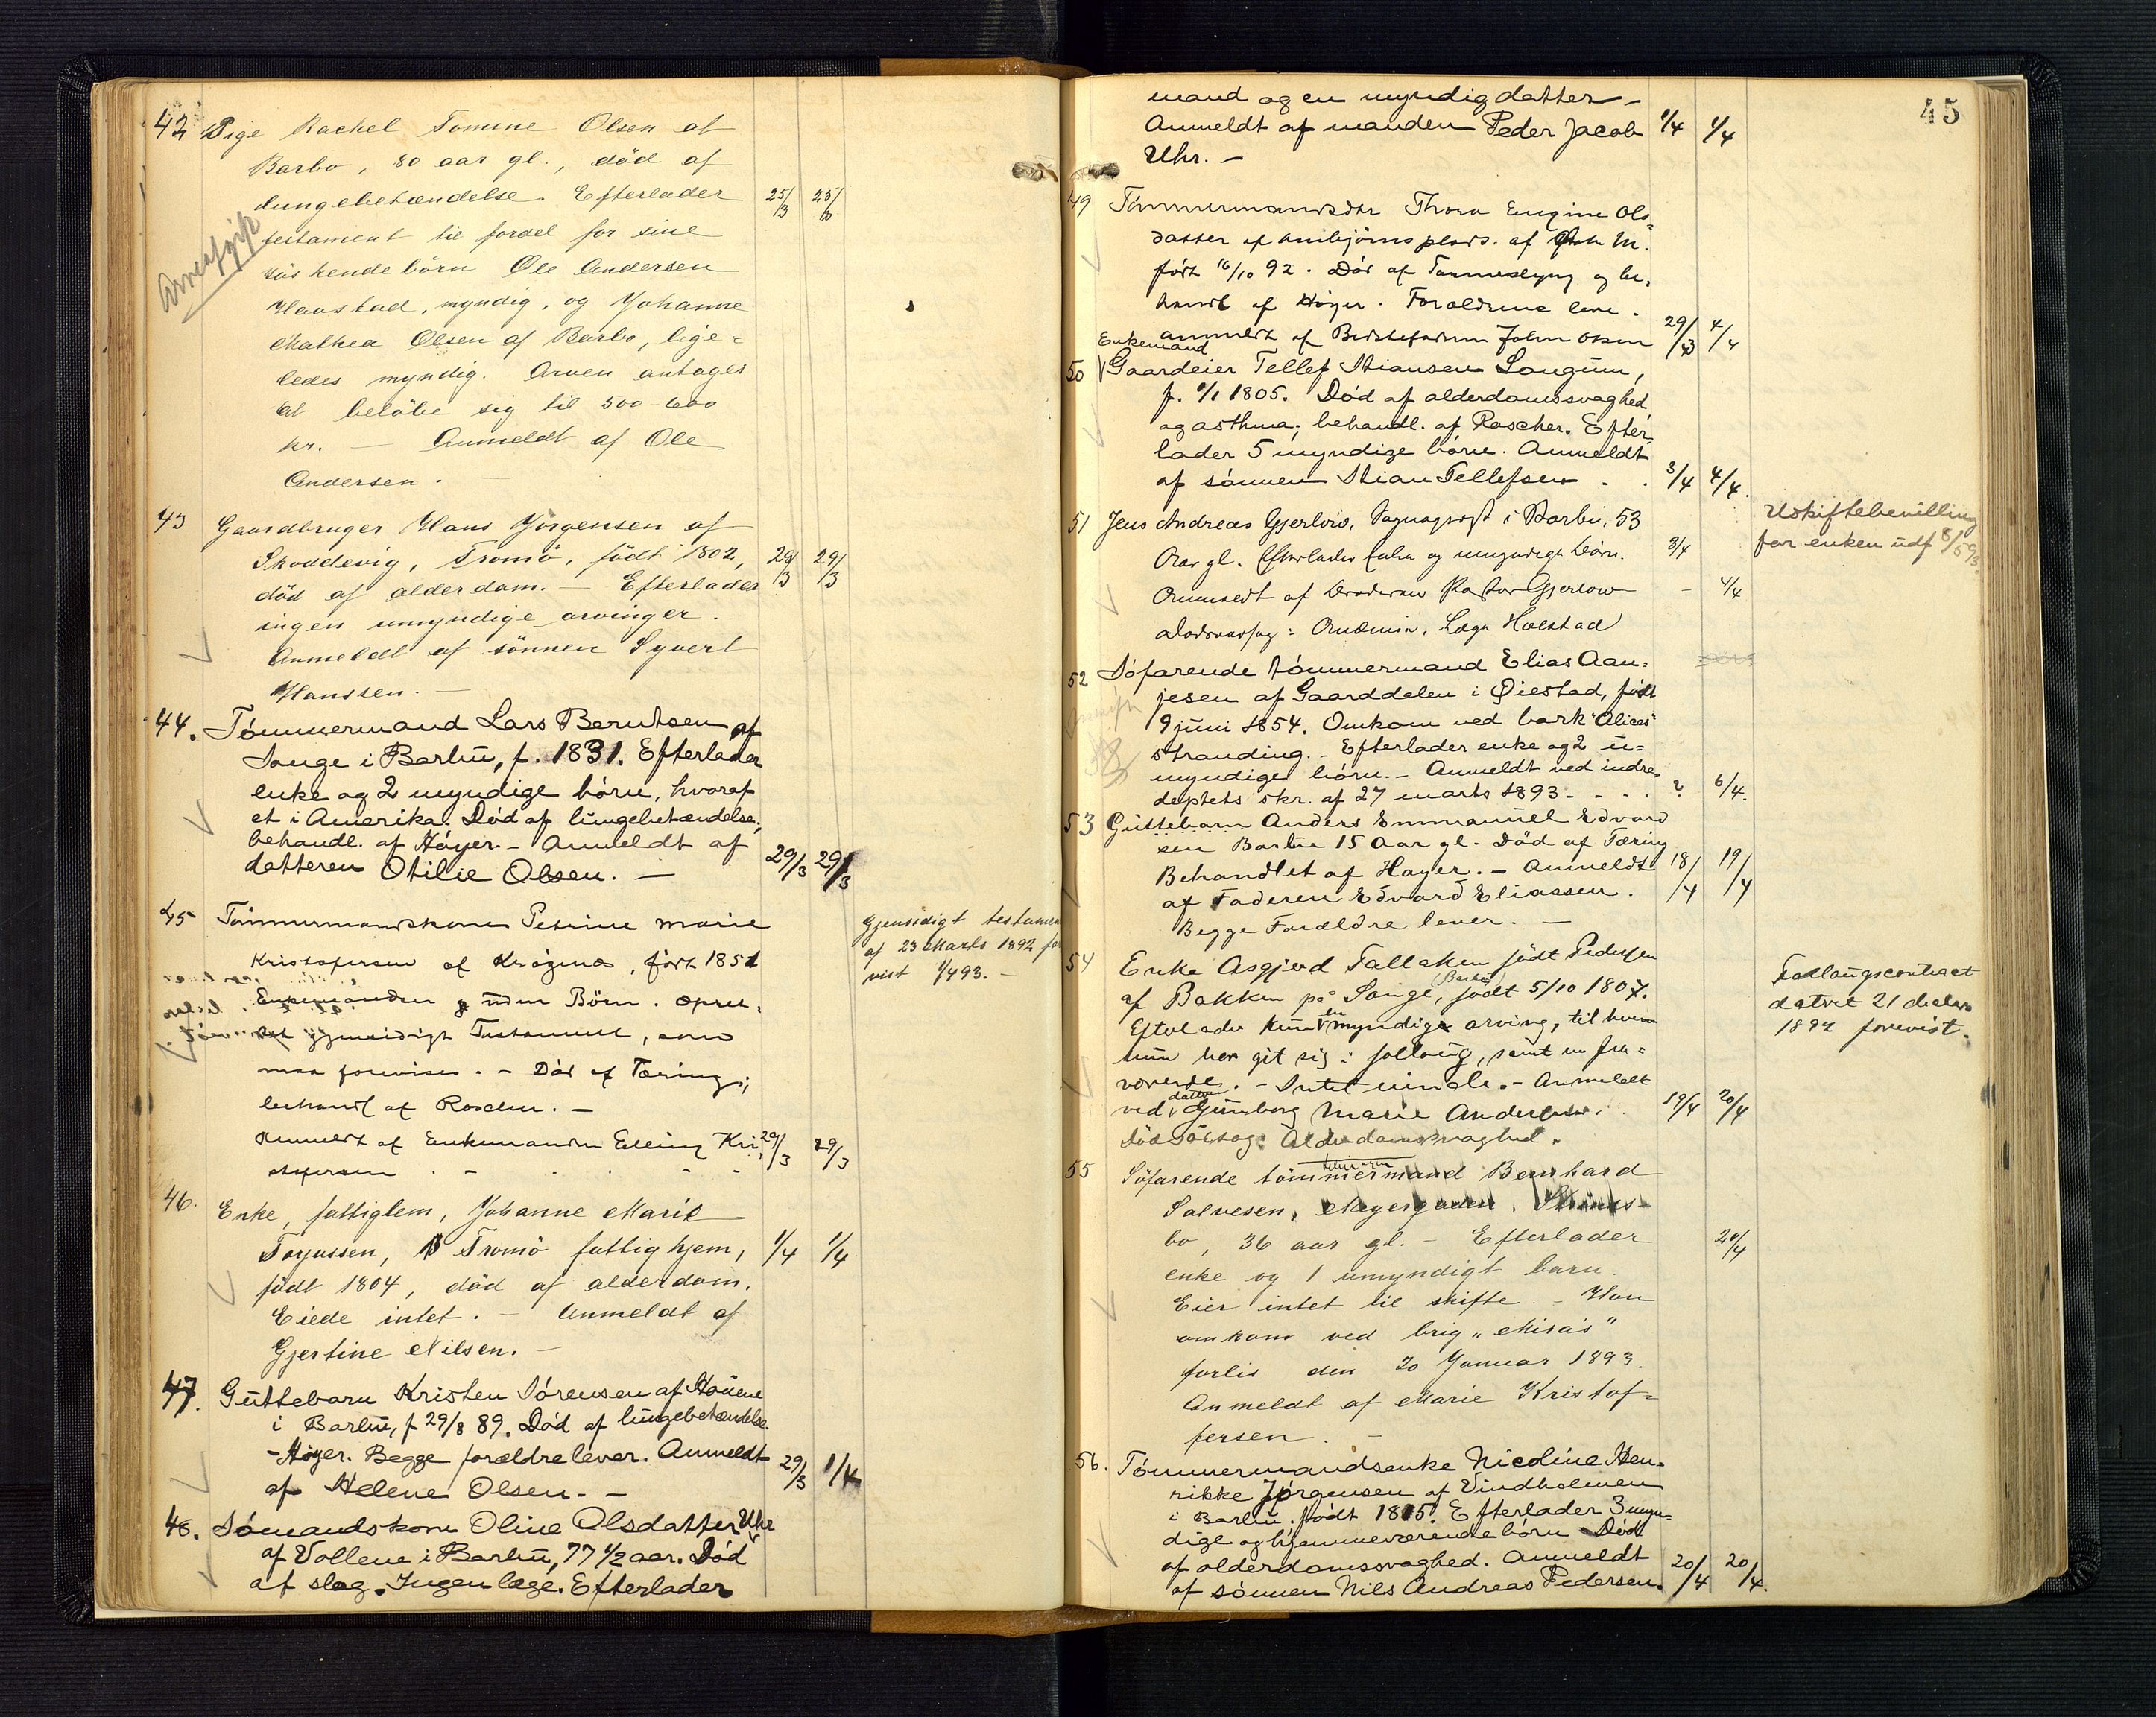 42 Pige Rachel Tomine Olsen af
Barbo, 80 aar gl., död af
lungebetændelse. Efterlader 25/3 25/3
testament til fordel for sine
söskendebörn Ole Andersen
Havstad, myndig, og Johanne
Mathea Olsen af Barbo, lige=
ledes myndig. Arven antages
at belöbe sig til 500-600
kr. — Anmeldt af Ole
Andersen. —
Arveafgift
43 Gaardbruger Hans Jörgensen af
Skouddevig, Tromö, födt 1802, 29/3 29/3
död af alderdom. — Efterlader
ingen umyndige arvinger.
Anmeldt af sönnen Syvert
Hanssen. —
44. Tömmermand Lars Berntsen af
Songe i Barbu, f. 1831. Efterlader
enke og 2 myndige börn, hvoraf
et i Amerika. Död af lungebetændelse;
behandl. af Höyer. — Anmeldt af
datteren Otilie Olsen. — 29/3 29/3
45 Tömmermandskone Petrine Marie
Kristofersen af Krögenes, født 1851
Enkemanden g uden Börn. Opret,
det gjensidigt Testament, som
maa forevises. — Död af Tæring;
behandl af Roscher. —
Anmeldt af Enkemanden Elling Kri= 29/3 29/3
stofersen
Gjensidigt testament
af 23 Marts 1892 fore
vist 1/4 93. —
46. Enke, fattiglem, Johanne Marie
Torjussen, Tromö fattighjem, 1/4 1/4
födt 1804, död af alderdom.
Eiede intet. — Anmeldt af
Gjertine Nilsen. —
47. Guttebarn Kristen Sörensen af Houene
i Barbu, f 29/8 89. Död af lungebetændelse.
— Höyer. Begge forældre lever. Anmeldt 29/3 1/4
af Helene Olsen. —
48. Sömandskone Oline Olsdatter Uhr
af Vollene i Barbu, 77 1/2 aar. Död
af slag. Ingen læge. Efterlader
45
mand og en myndig datter —
Anmeldt af manden Peder Jacob 1/4 1/4
Uhr. —
49 Tömmermandsdtr Thora Eugine Ols=
datter af Arnbjörnsplads. af
født 16/10 92. Död af og be,
handl af Höyer. Forældrene leve.
anmeldt af Bedstefaderen John Olsen 29/3 4/4
50 Enkemand Gaardeier Tellef Stiansen Longum,
f. 1/1 1805. Död af alderdomssvaghed
og asthma; behandl. af Roscher. Efter=
lader 5 myndige börn. Anmeldt
af sönnen Stian Tellefsen . . 3/4 4/4.
51 Jens Andreas Gjerlow, Sogneprest i Barbu, 53
Aar gl. Efterlader Enke og umyndige börn. 3/4
Anmeldt af broderen Pastor Gjerlow — 4/4
Dödsaarsag: Anæmia, Læge Holstad
Uskiftebevilling
for enken udf 8/5 93.
52 Söfarende tömmermand Elias Aan=
jesen af Gaarddalen i Øiestad, födt
9 juni 1854. Omkom ved bark "Alices"
stranding. — Efterlader enke og 2 u=
myndige börn. — Anmeldt ved indre=
deptets skr. af 27 marts 1893 — . . . ? 6/4.
53 Guttebarn Anders Emmanuel Edvard
sen Barbu 15 Aar gl. — Död af Tæring
Behandlet af Høyer. — Anmeldt 18/4 19/4
af Faderen Edvard Eliassen.
Begge Forældre lever. —
54 Enke Asgjerd Fallaken födt Pedersen
af Bakken på Songe, (Barbu) födt 5/10 1807.
Efterlader kun en myndig arving, til hvem
hun har git sig i follaug, samt en fra=
værende. — Intet uinde. — Anmeldt
ved datter Gunborg Marie Andersen. 19/4 20/4
Dödsårsag: Alderdomssvaghed.
Follaugscontract
datert 21 decbr
1892 forevist.
55 Söfarende tömmermand Bernhard
Salvesen, Meyergaden, Strömsbo,
bo, 36 aar gl. — Efterlader 20/4
enke og 1 umyndigt barn.
Eier intet til skifte. — Han
omkom ved brig "Misa's"
forlis den 20 Januar 1893.
Anmeldt af Marie Kristof=
fersen. —
56. Tömmermandsenke Nicoline Hen=
rikke Jørgensen af Vindholmen
i Barbu. födt 1815. Efterlader 3 myn=
dige og hjemmeværende börn Död
af alderdomssvaghed. Anmeldt
af sönnen Nils Andreas Pedersen. 20/4 20/4.